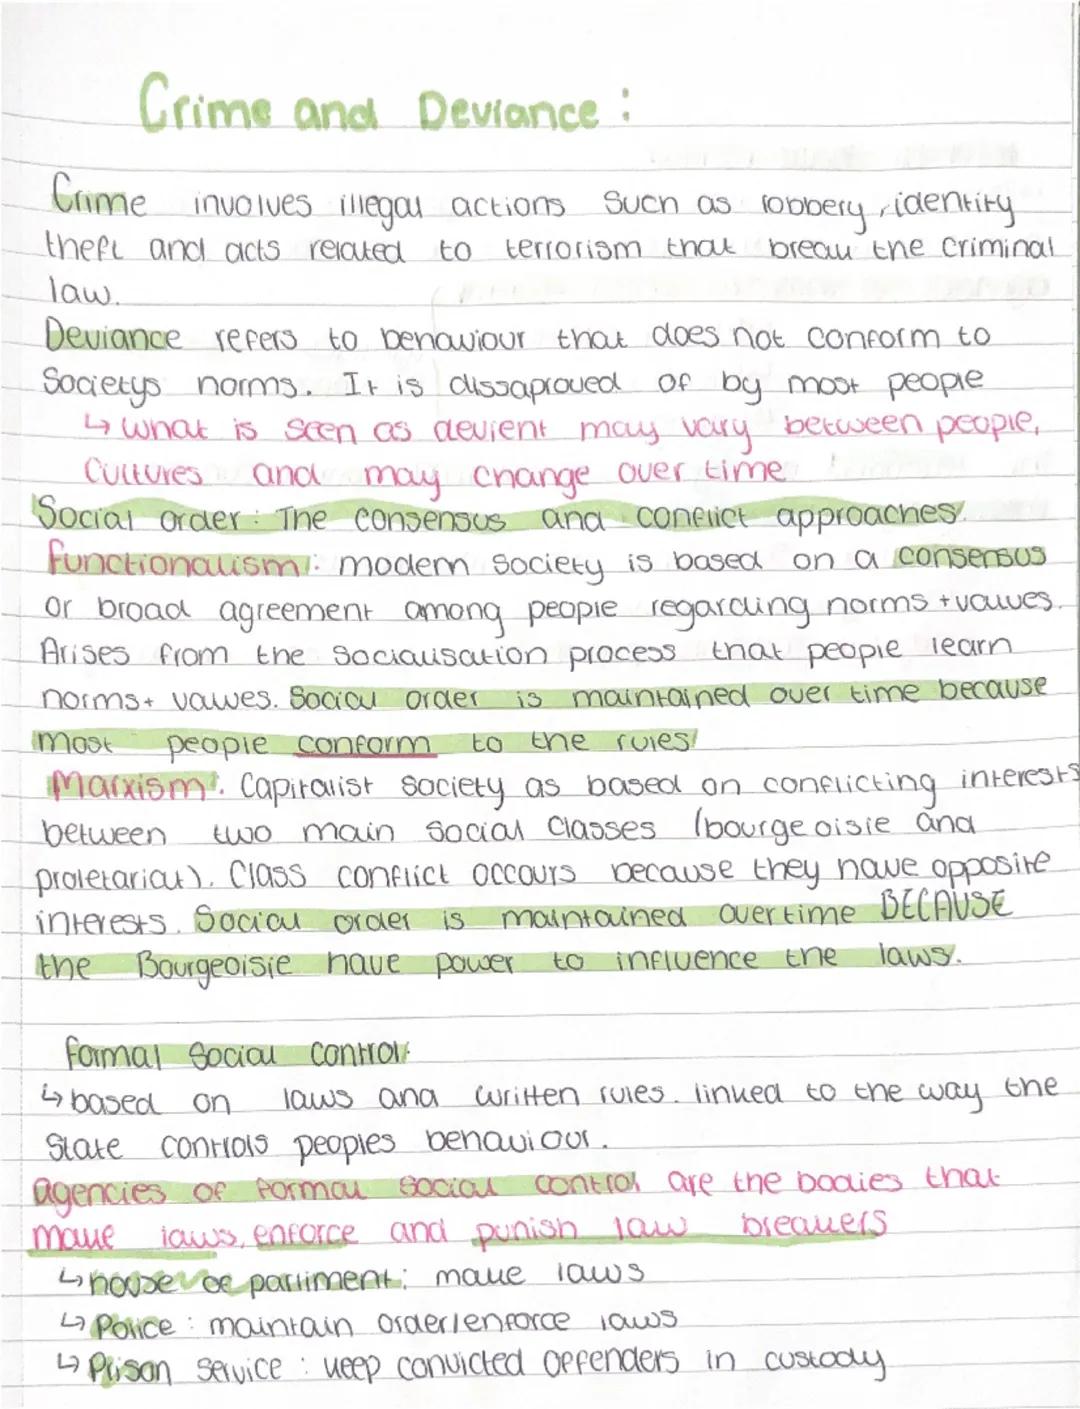 Crime and Deviance :
Crime involves illegal actions such as robbery, identity
theft and acts related to terrorism that break the criminal
law.
Deviance refers to behaviour that does not conform to
Societys norms. It is dissaproved of by most people
↳ what is seen as devient may vary between people,
cultures and may change over time
Social order : The consensus and conflict approaches.
Functionalism : modern society is based on a consensus
or broad agreement among people regarding norms + values.
Arises from the socialisation process that people learn
norms + values. Social order is maintained over time because
most people conform to the rules
Marxism : Capitalist society as based on conflicting interests
between two main social classes (bourgeoisie and
proletariat). Class conflict occours because they have opposite
interests. Social order is maintained overtime BECAUSE
the Bourgeoisie have power to influence the laws.
Formal Social Control
↳ based on laws and written rules. linked to the way the
State controls peoples behaviour.
agencies of formal social control are the bodies that
make laws, enforce and punish law breakers
↳ house of parliment : make laws
↳ Police : maintain order/enforce laws
↳ Prison service : keep convicted offenders in custody